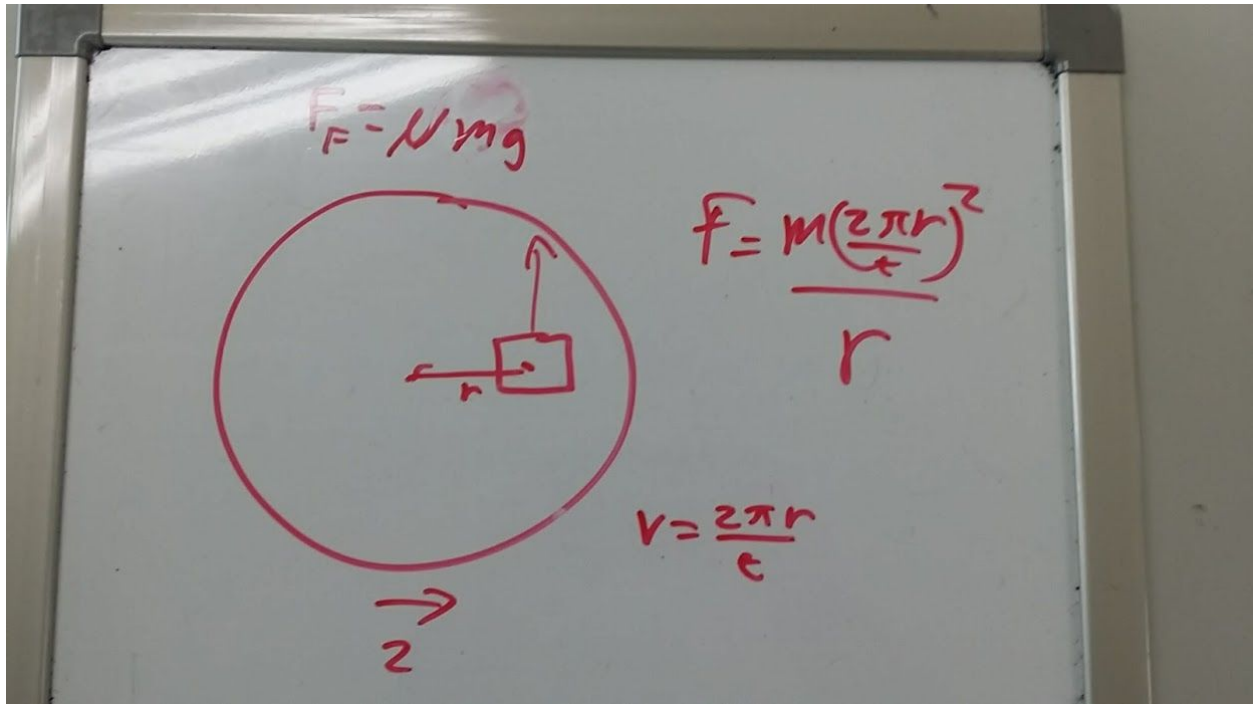 F_F = μmg
F = m(2πr/t)² / r
r
v = 2πr/t
2